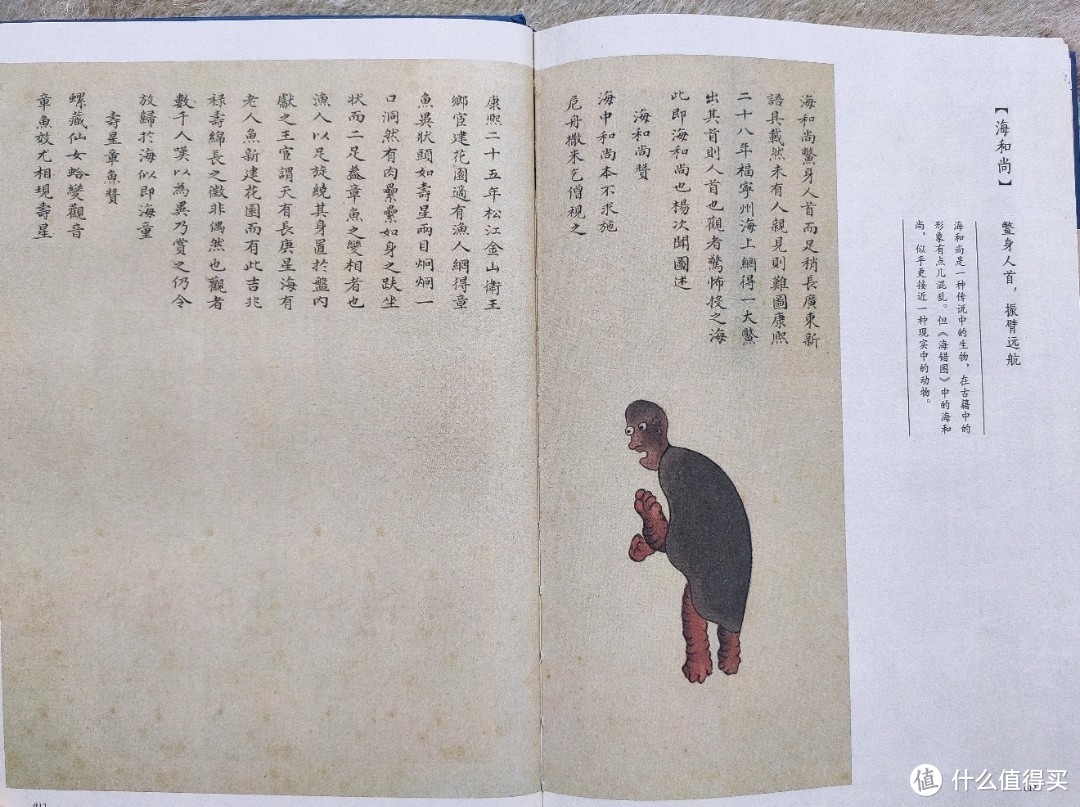 【海和尚】
鳖身人首，振臂远航
海和尚是一种传说中的生物，在古籍中的
形象有点儿混乱。但《海错图》中的海和
尚，似乎更接近一种现实中的动物。
海和尚鱉身人首而足稍長廣東新
語具載然未有人親見則難圖康熙
二十八年福寧州海上網得一大鱉
出其首則人首也觀者驚怖投之海
此即海和尚也楊次聞圖述
海和尚贊
海中和尚本不求施
危舟撒米乞僧視之
康熙二十五年松江金山衛王
鄉宦建花園適有漁人網得章
魚異狀頭如壽星兩目炯炯一
口洞然有肉纍纍如身之趺坐
狀而二足葢章魚之變相者也
漁人以足旋繞其身置於盤內
獻之王宦謂天有長庚星海有
老人魚新建花園而有此吉兆
祿壽綿長之徵非偶然也觀者
數千人嘆以為異乃賞之仍令
放歸於海似即海童
壽星章魚贊
螺藏仙女蛤變觀音
章魚效尤相現壽星
值 什么值得买